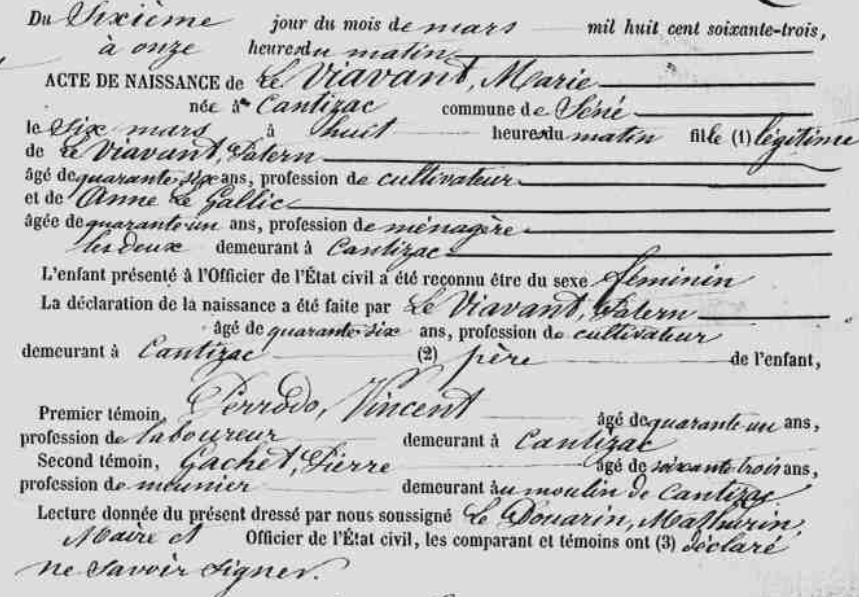 Du Sixième jour du mois de mars mil huit cent soixante-trois,
à onze heures du matin
ACTE DE NAISSANCE de Le Viavant, Marie
née à Cantizac commune de Séné
le Six mars à huit heures du matin fille (1) légitime
de Le Viavant, Patern
âgé de quarante-six ans, profession de cultivateur
et de Anne Le Gallic
âgée de quarante-un ans, profession de ménagère
les deux demeurant à Cantizac
L'enfant présenté à l'Officier de l'État civil a été reconnu être du sexe féminin
La déclaration de la naissance a été faite par Le Viavant, Patern
âgé de quarante-six ans, profession de cultivateur
demeurant à Cantizac (2) père de l'enfant,
Premier témoin, Perrodo, Vincent âgé de quarante un ans,
profession de laboureur demeurant à Cantizac
Second témoin, Gachet, Pierre âgé de soixante trois ans,
profession de meunier demeurant au moulin de Cantizac
Lecture donnée du présent dressé par nous soussigné Le Douarin, Mathurin
Maire et Officier de l'État civil, les comparant et témoins ont (3) déclaré
ne savoir signer.